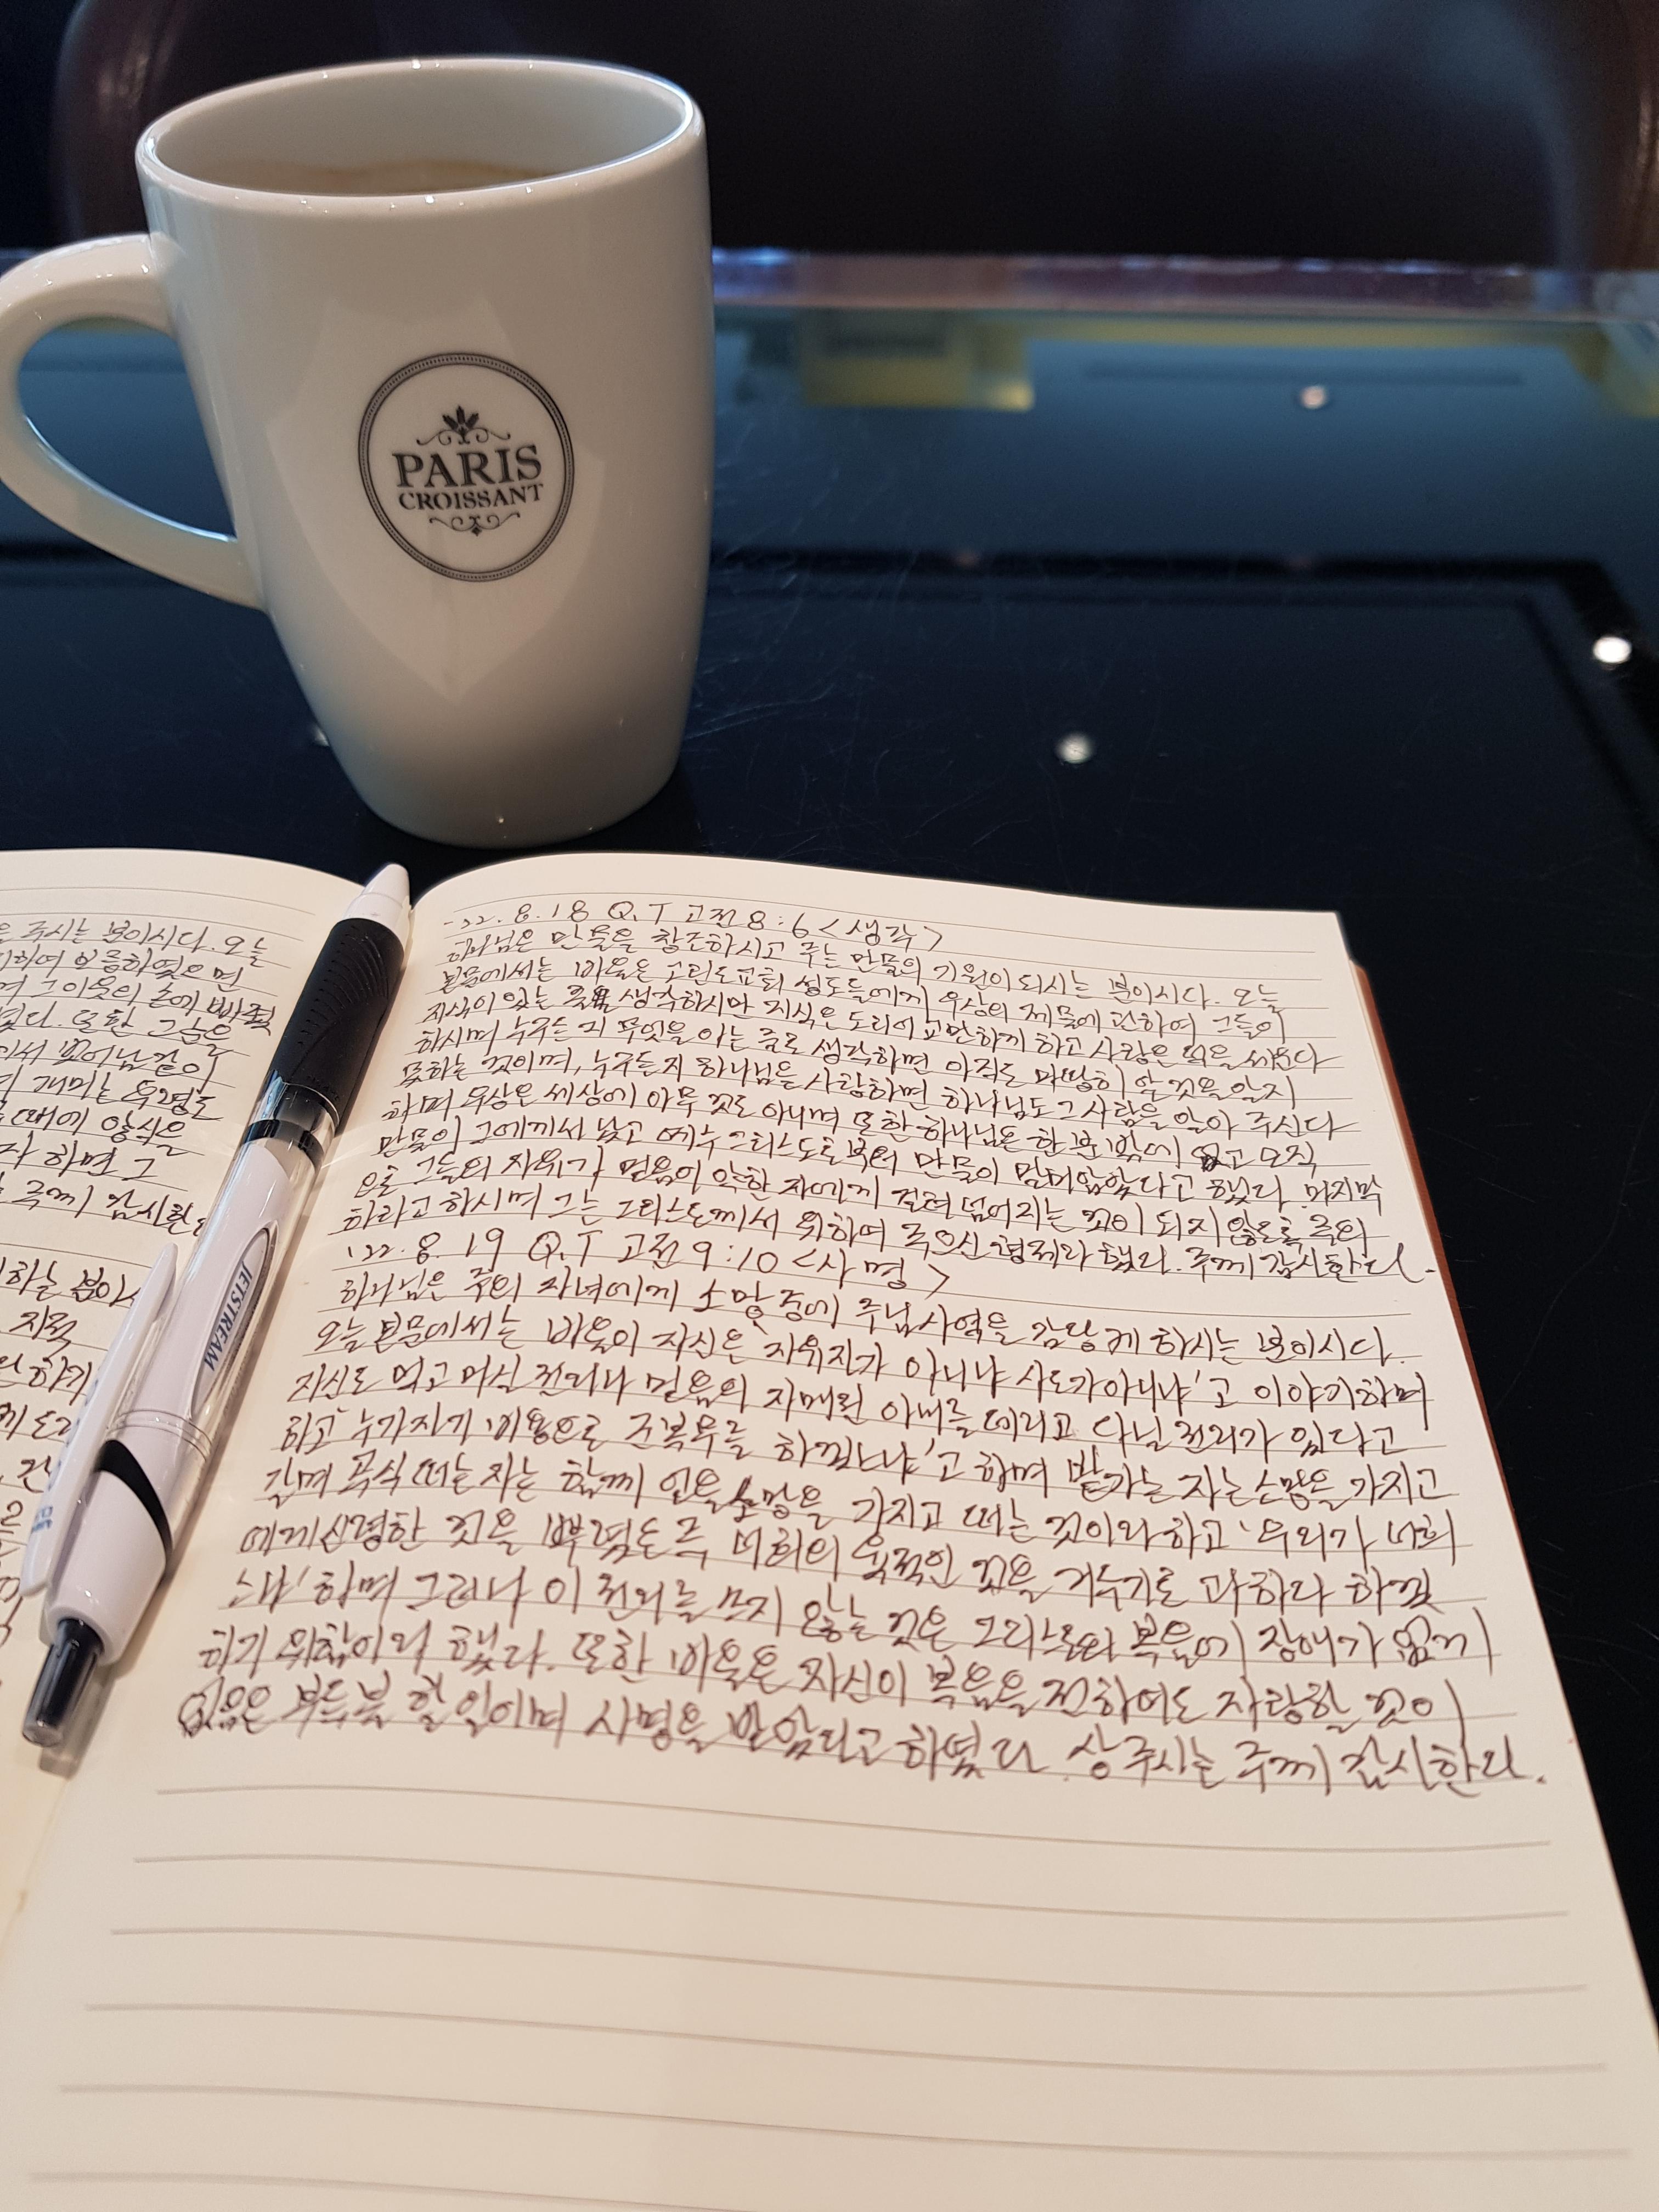 PARIS
CROISSANT
JETSTREAM
은 주시는 분이시다. 오늘
하여 보증하였으면
며 그 이웃의 손에 빠졌
또한 그금은
에서 벗어남같이
개미는 두령도
때에 양식을
자 하면 그
주께 감사한다
하는 분이시
지적
'22. 8. 18 Q.T 고전 8:6 <생각>
하나님은 만물을 창조하시고 주는 만물의 기원이 되시는 분이시다. 오늘
본문에서는 바울은 고린도교회 성도들에게 우상의 제물에 관하여 그들이
지식이 있는 줄 생각하시만 지식은 도리어 교만하게 하고 사랑은 덕을 세운다
하시며 누구든지 무엇을 아는 줄로 생각하면 아직도 마땅히 알 것을 알지
못하는 것이며, 누구든지 하나님을 사랑하면 하나님도 그 사람을 알아 주시다
하며 우상은 세상에 아무 것도 아니며 또한 하나님은 한 분 밖에 없고 오직
만물이 그에게서 났고 예수 그리스도로부터 만물이 말미암았다고 했다. 마지막
으로 그들의 자유가 믿음이 약한 자에게 걸려 넘어지는 것이 되지 않도록 주의
하라고 하시며 그는 그리스도께서 위하여 죽으신 형제라 했다. 주께 감사한다.
'22. 8. 19 Q.T 고전 9:10 <사명>
하나님은 주의 자녀에게 소망중에 주님사역을 감당케 하시는 분이시다.
오늘 본문에서는 바울이 자신은 '자유자가 아니냐 사도가 아니냐'고 이야기하며
자신도 먹고 마실 권리나 믿음의 자매된 아내를 데리고 다닐 권리가 있다고
하고 '누가 자기 비용으로 군복무를 하겠느냐'고 하며 밭가는 자는 소망을 가지고
갈며 곡식 떠는 자는 함께 얻을 소망을 가지고 떠는 것이라 하고 '우리가 너희
에게 신령한 것을 뿌렸은즉 너희의 육적인 것을 거두기로 과하다 하겠
느냐' 하며 그러나 이 권리를 쓰지 않는 것은 그리스도의 복음에 장애가 없게
하기 위함이라 했다. 또한 바울은 자신이 복음을 전하여도 자랑할 것이
없음은 부득불 할 일이며 사명을 받았다고 하였다. 상 주시는 주께 감사한다.